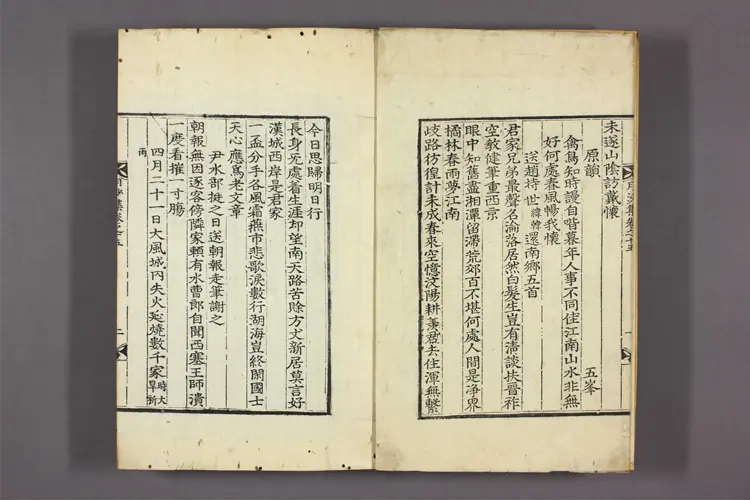 未遂山陰訪戴懷
原韻 五峯
禽鳥知時謾自啼暮年人事不同佳江南山水非無
好何處春風暢我懷
送趙持世緯韓還南鄉五首
君家兄弟最聲名淪落居然白髮生豈有淸談扶晉祚
空敎健筆重西京
眼中知舊盡湘潭留滯荒郊百不堪何處人間是淨界
橘林春雨夢江南
歧路彷徨計未成春來空憶汶陽耕羨君去住渾無繫
今日思歸明日行
長身死處着生涯却望南天路苦賒方丈新居莫言好
漢城西岸是君家
一盃分手各風霜燕市悲歌淚數行湖海豈終閑國士
天心應爲老文章
尹水部挺之日送朝報走筆謝之
朝報無因逐客傍隣家賴有水曹郎自聞西塞王師潰
一度看摧一寸腸
四月二十一日大風城內失火延燒數千家時大旱祈
雨